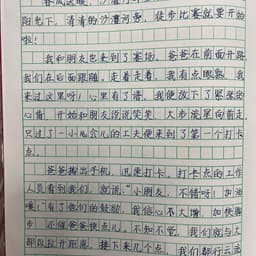 阳光下，清清的沙澧河旁，徒步比赛就要开始
啦！
我和朋友也来到了赛场，爸爸在前面开路
我们在后面跟随，走着走着，我有点眼熟，我
来过这里呀！心里有了谱，我便放下了紧张的
心情，开始和朋友说说笑笑，大步流星向前走
只过了一小会儿的工夫便来到了第一个打卡
点。
爸爸掏出手机，迅速打卡。打卡点的工作
人员看到我们，就说："小朋友，不错呀！加油
哦！"有了他们的鼓励，我信心大增，加快脚
步，还催爸爸快点儿。不知不觉，我们就与大
部队拉开距离。接下来几个点，我们都行云流